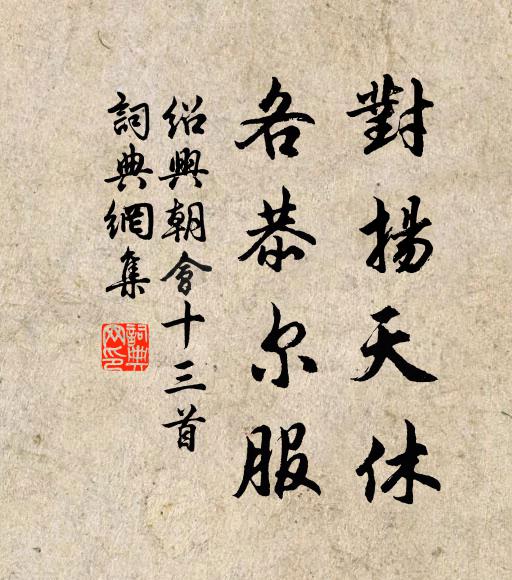 對揚天休
各恭尔服
紹興朝會十三首
詞典網集
詞典網印